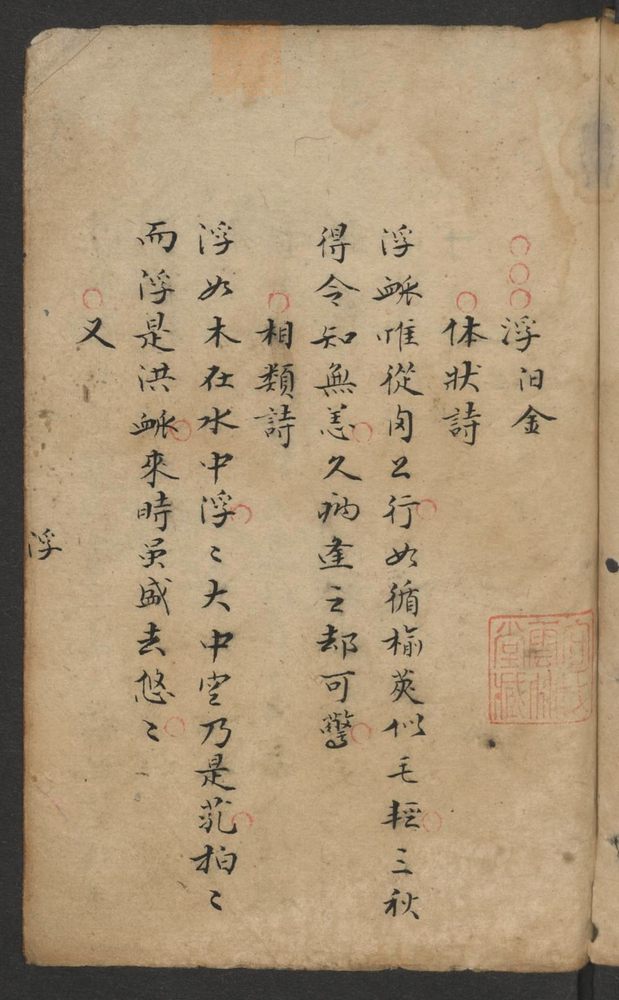 浮 阳金
体状詩
浮脉唯從肉上行如循榆莢似毛輕三秋
得令知無恙久病逢之却可驚
相類詩
浮如木在水中浮〻大中空乃是芤拍〻
而浮是洪脉來時虽盛去悠〻
又
浮